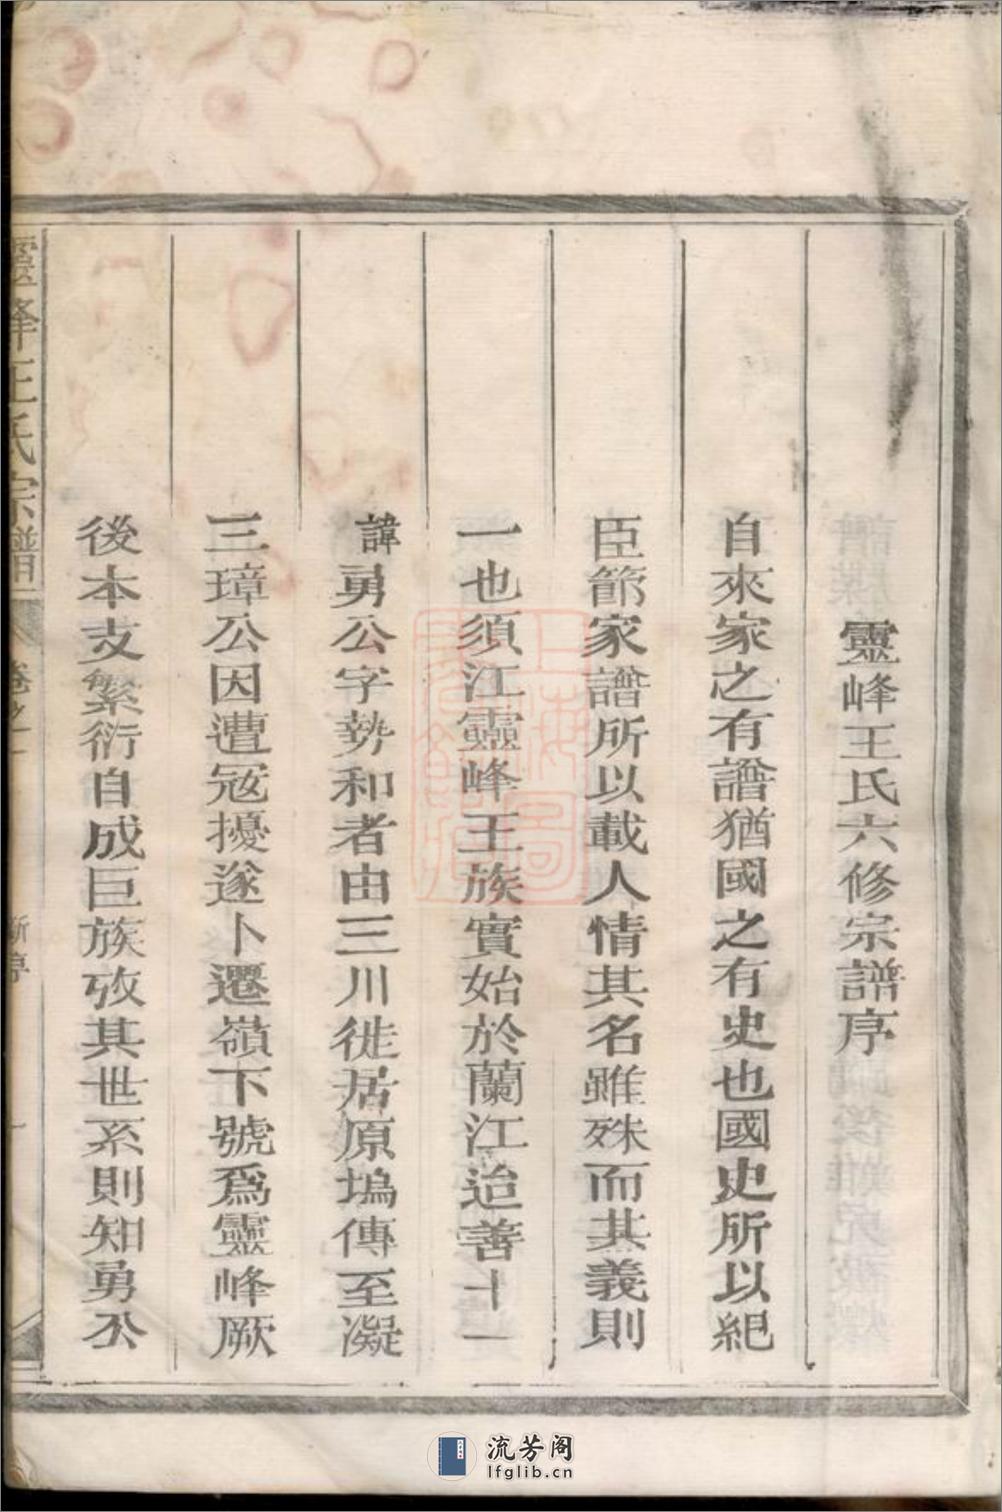 靈峰王氏六修宗譜序
自來家之有譜猶國之有史也國史所以紀
臣節家譜所以載人情其名雖殊而其義則
一也須江靈峰王族實始於蘭江迨善十一
諱勇公字勢和者由三川徙居原塢傳至凝
三璋公因遭冦擾遂卜遷嶺下號爲靈峰厥
後本支繁衍自成巨族攷其世系則知勇公
靈峰王氏宗譜
卷之一
新序
一
流芳阁
lfglib.cn